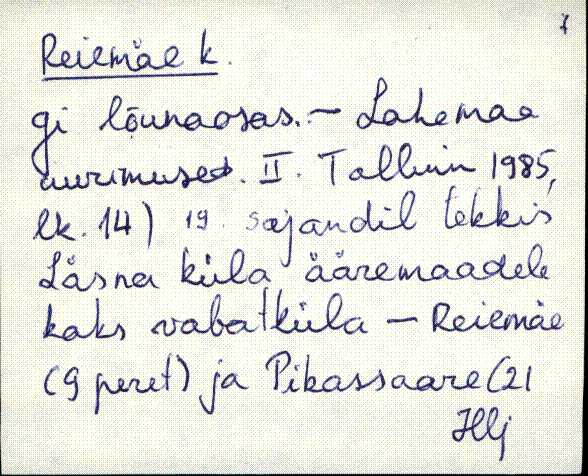 Reiemäe k.
gi lõunaosas. – Lahemaa
uurimused. II. Tallinn 1985,
lk. 14) 19. sajandil tekkis
Läsna küla ääremaadele
kaks vabatküla – Reiemäe
(9 peret) ja Pikassaare (21